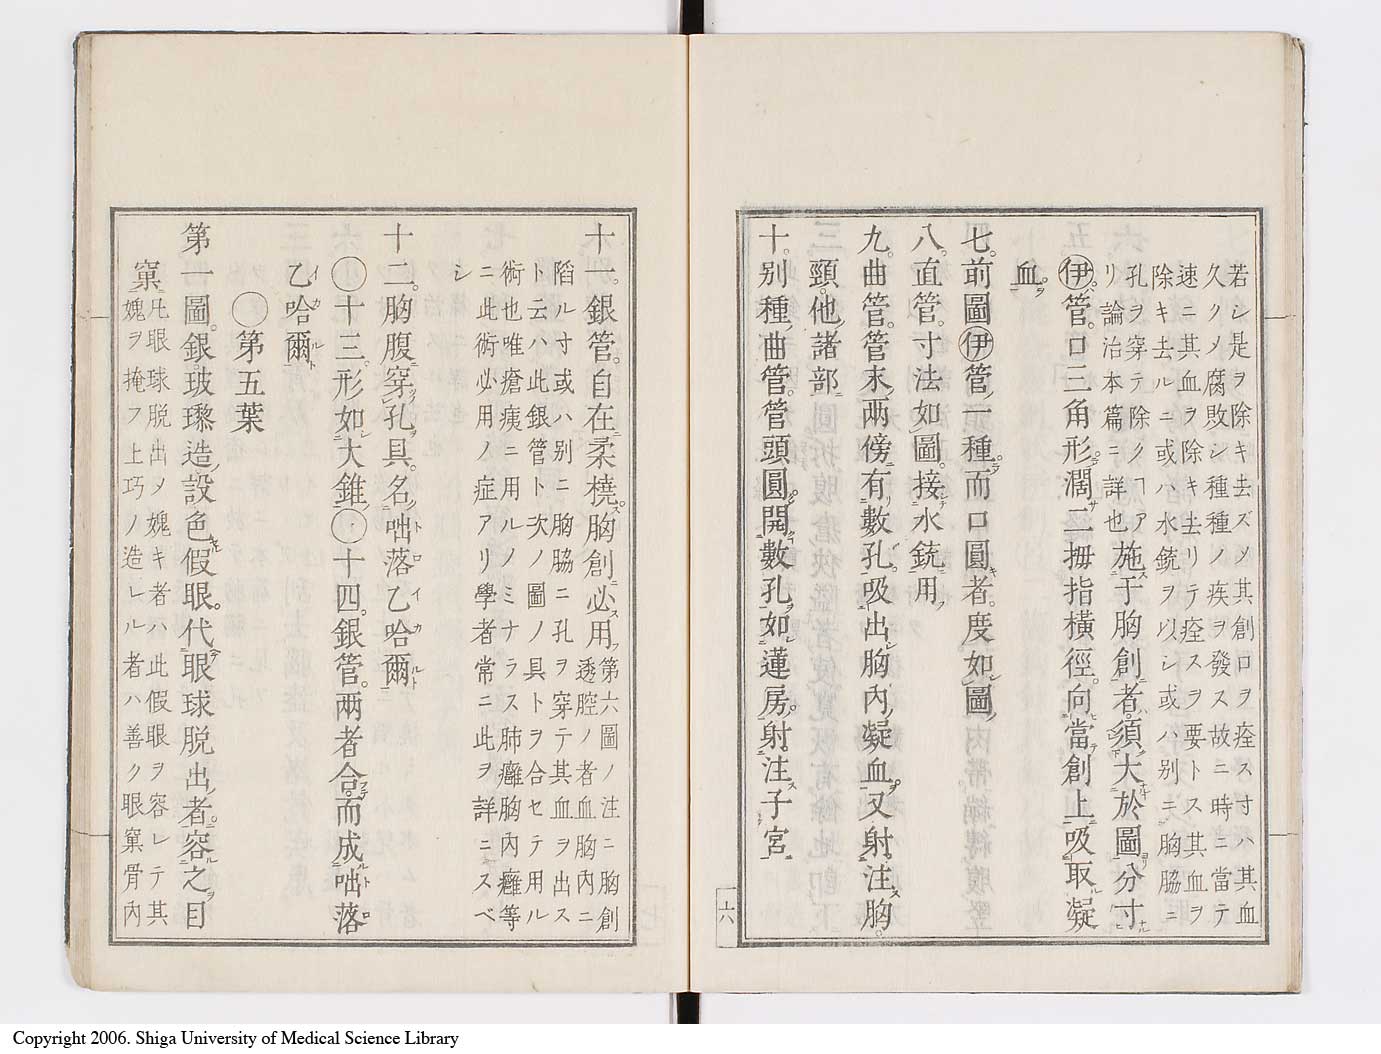 若シ是ヲ除キ去ズメ其創口ヲ痊ス寸ハ其血
久クノ腐敗シ種種ノ疾ヲ發ス故ニ時ニ當テ
速ニ其血ヲ除キ去リテ痊スヲ要トス其血ヲ
除キ去ルニ或ハ水銃ヲ以シ或ハ別ニ胸脇ニ
孔ヲ穿テ除クヿアリ論治本篇ニ詳也
施于胸創者須大於圖八分寸
伊管口三角形濶二拇指横徑向當創上吸取凝
血
七前圖伊管一種而口圓者度如圖
八直管寸法如圖接水銃用
九曲管管末兩傍有數孔吸出胸內凝血又射注胸
頸他諸部
十別種曲管管頭圓開數孔如蓮房射注子宮
六
十一銀管自在柔橈胸創必用第六圖ノ注ニ胸創
透腔ノ者血胸內ニ
陷ル寸或ハ別ニ胸脇ニ孔ヲ穿テ其血ヲ出ス
ト云ハ此銀管ト次ノ圖ノ具トヲ合セテ用ル
術也唯瘡痍ニ用ルノミナラス肺癰胸內癰等
ニ此術必用ノ症アリ學者常ニ此ヲ詳ニスベ
シ
十二胸腹穿孔具名咄落乙哈爾
〇十三形如大錐〇十四銀管兩者合而成咄落
乙哈爾
〇第五葉
第一圖銀玻瓈造設色假眼代眼球脫出者容之目
窠凡眼球脫出ノ媿キ者ハ此假眼ヲ容レテ其
媿ヲ掩フ上巧ノ造レル者ハ善ク眼窠骨內
Copyright 2006. Shiga University of Medical Science Library